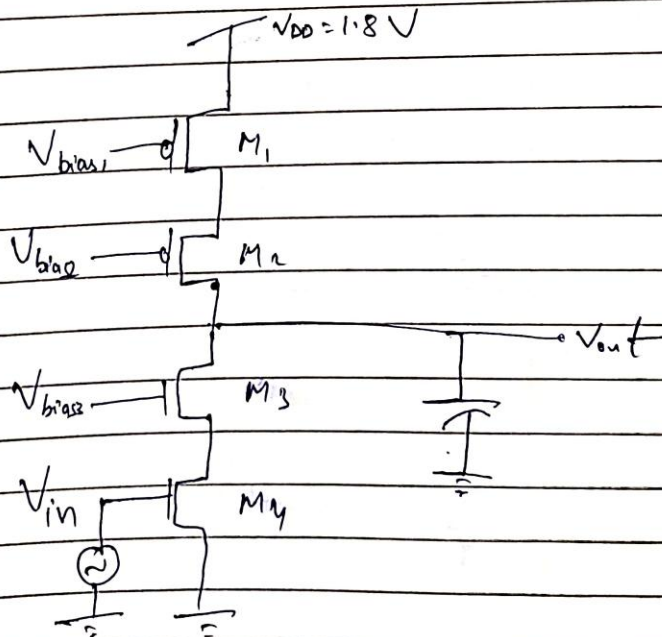 VDD = 1.8 V
Vbias1
M1
Vbias2
M2
Vout
Vbias3
M3
Vin
M4